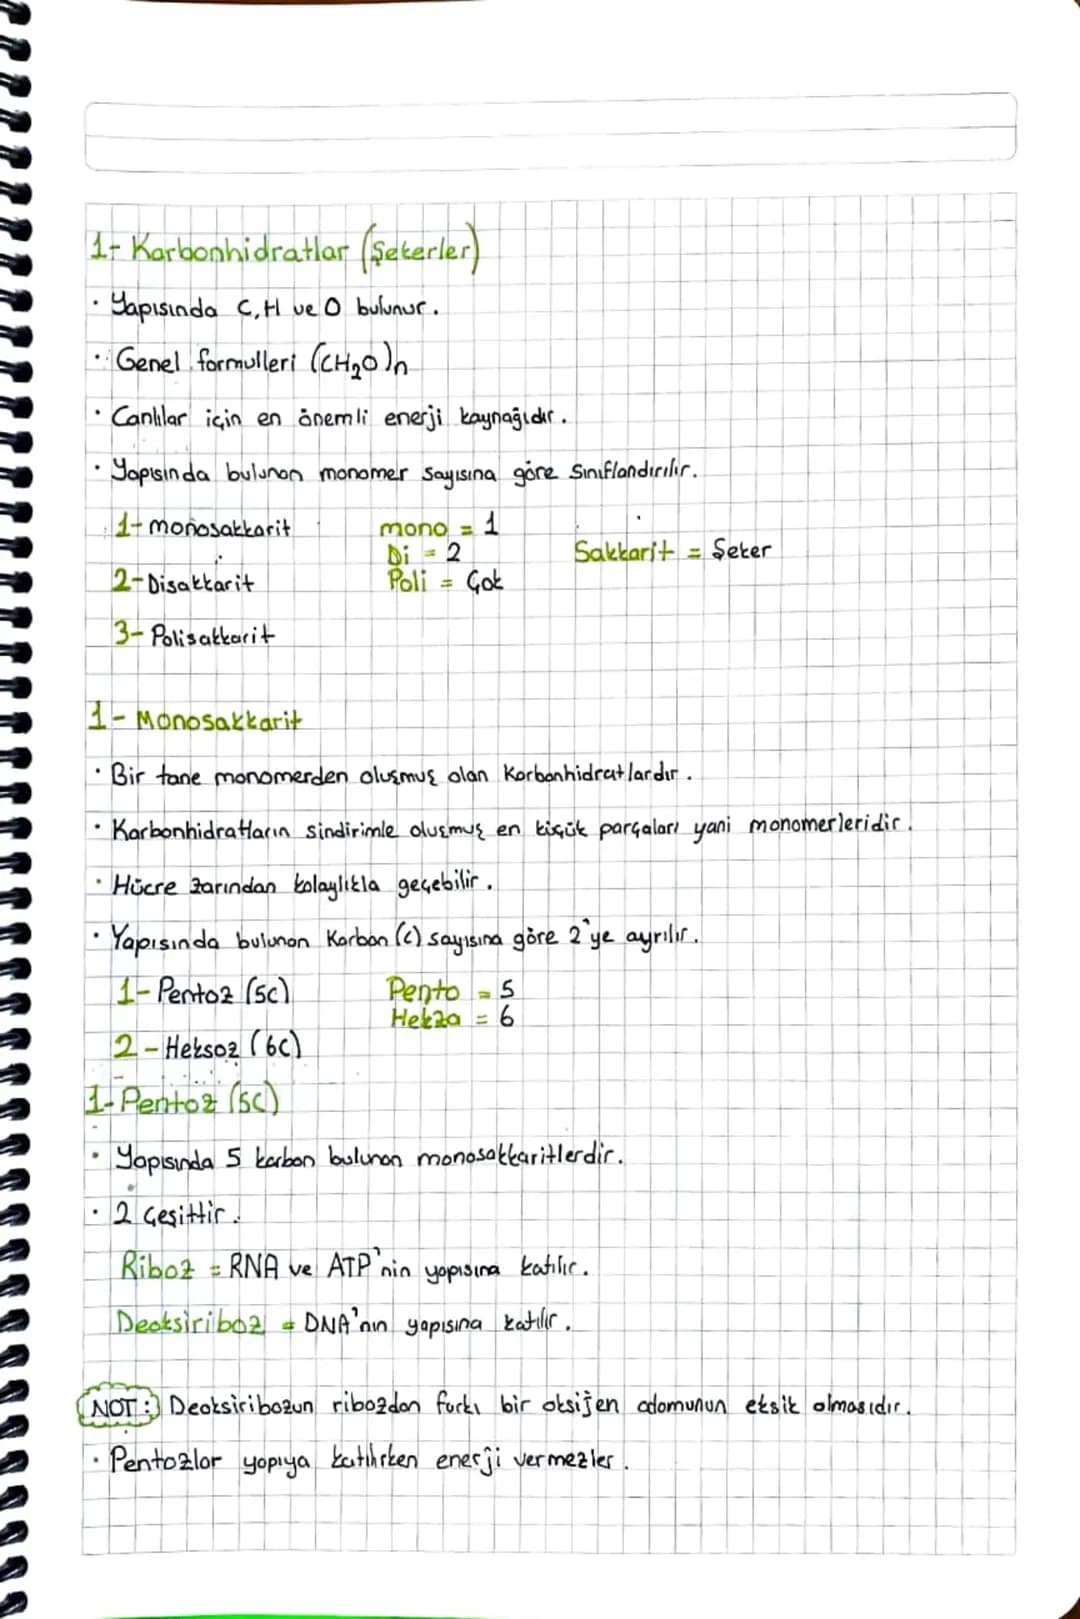 1- Karbonhidratlar (Şekerler)
• Yapısında C, H ve O bulunur.
• Genel formulleri (CH₂O)n
• Canlılar için en önemli enerji kaynağıdır.
• Yapısında bulunan monomer sayısına göre sınıflandırılır.
1- monosakkarit mono = 1
Di = 2 Sakkarit = Şeker
2- Disakkarit Poli = Çok
3- Polisakkarit
1- Monosakkarit
• Bir tane monomerden oluşmuş olan Karbonhidratlardır.
• Karbonhidratların sindirimle oluşmuş en küçük parçaları yani monomerleridir.
• Hücre zarından kolaylıkla geçebilir.
• Yapısında bulunan Karbon (C) sayısına göre 2'ye ayrılır.
1- Pentoz (5C) Pento = 5
Hekza = 6
2- Heksoz (6C)
1- Pentoz (5C)
• Yapısında 5 karbon bulunan monosakkaritlerdir.
• 2 Çeşittir.
Riboz = RNA ve ATP'nin yapısına katılır.
Deoksiriboz = DNA'nın yapısına katılır.
NOT: Deoksiribozun ribozdan farkı bir oksijen adomunun eksik olmasıdır.
• Pentozlar yapıya katılırken enerji vermezler.